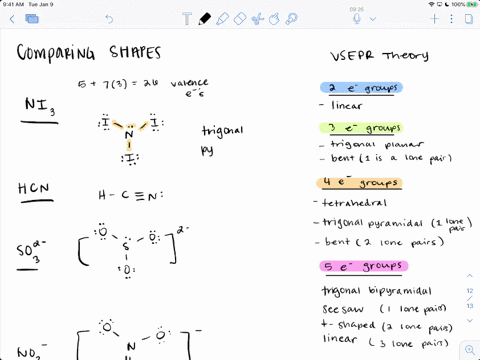 9:41 AM Tue Jan 9
100%
09:26
COMPARING SHAPES
5 + 7(3) = 26 valence
e⁻s
NI₃
I I
N
I
trigonal
py
HCN
H - C ≡ N:
SO₃²⁻
[ :O - S - O: ]²⁻
:O:
NO₂⁻
[ O N O: ]⁻
VSEPR Theory
2 e⁻ groups
- linear
3 e⁻ groups
- trigonal planar
- bent (1 is a lone pair)
4 e⁻ groups
- tetrahedral
- trigonal pyramidal (1 lone pair)
- bent (2 lone pairs)
5 e⁻ groups
trigonal bipyramidal
see saw (1 lone pair)
t-shaped (2 lone pairs)
linear (3 lone pairs)
12
13